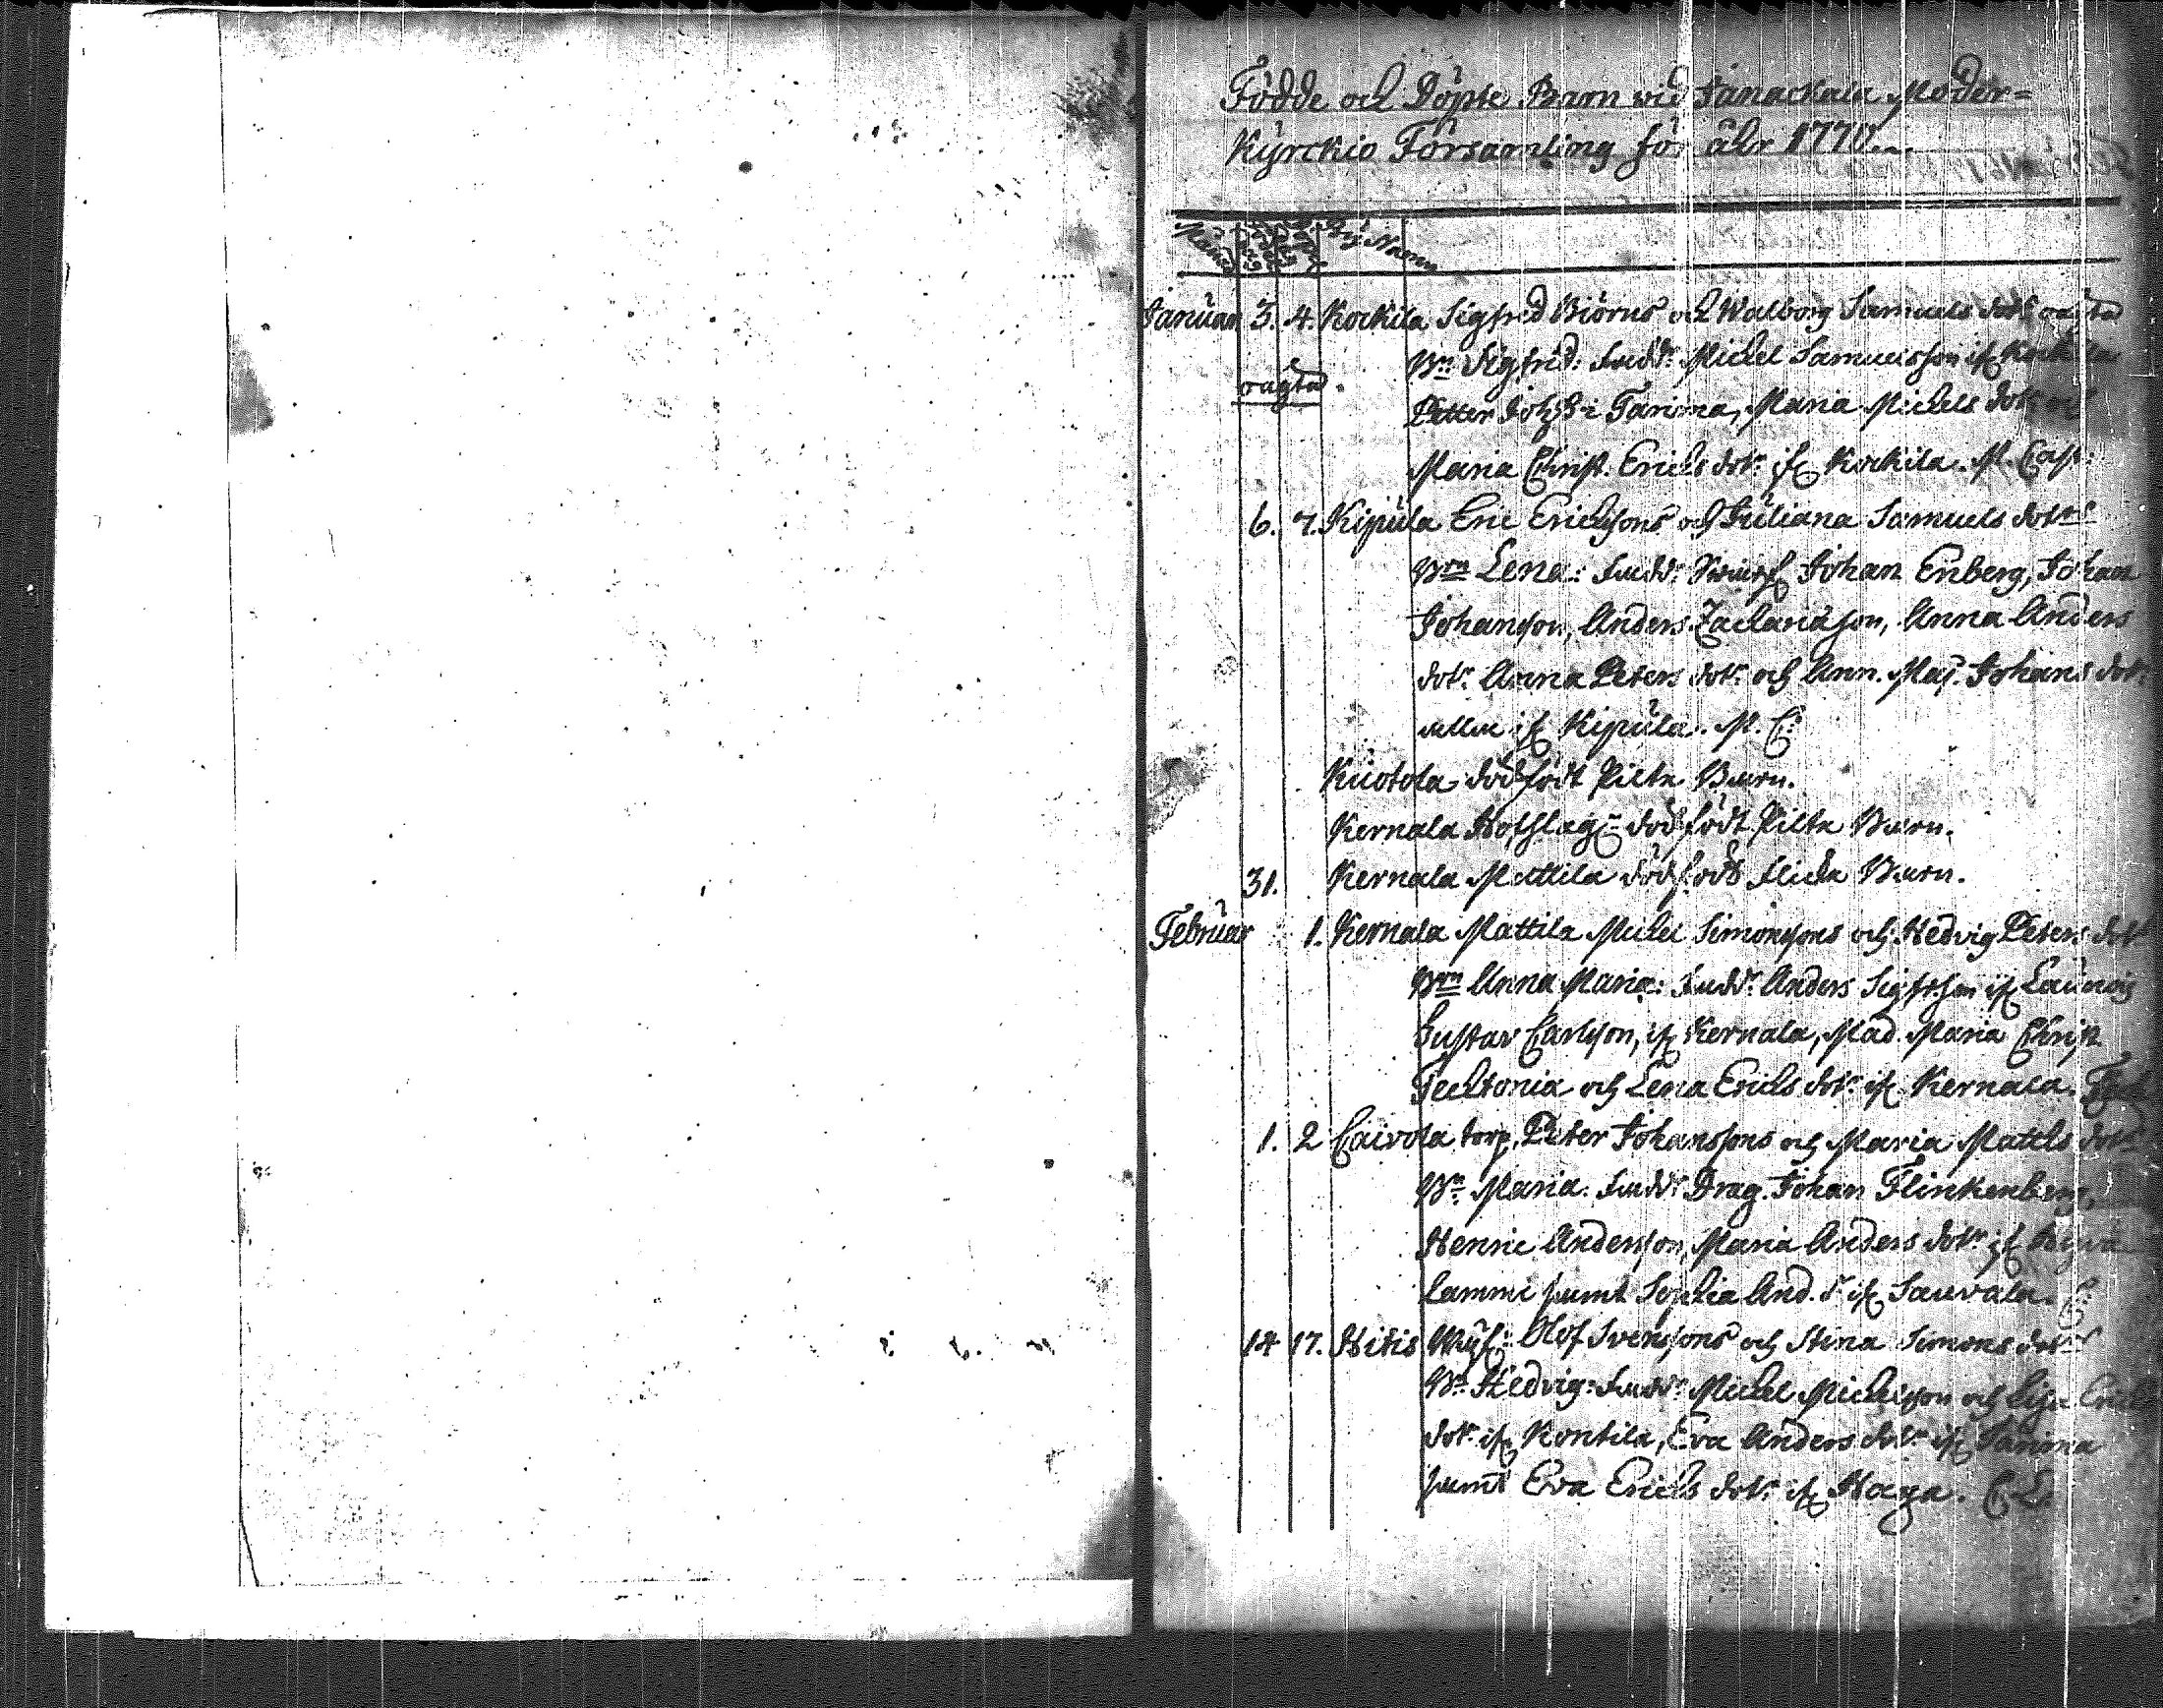 Födde och Döpte Barn vid Janackala Moder=
Kyrckio Församling för åhr 1770.
Månad By Namn
Januari 3. 4. Kockila Sigfred Biörns och Walborg Samuels dotr oägta
Bn Sigfrid: Fadd: Michel Samuelsson if Kockila
oägta.
Petter Joh: S: i Tarinma, Maria Michels dotr och
Maria Christ. Erichs dotr if Kockila. M. Cast:
6. 7. Kipula Eric Erichsons och Juliana Samuels dotrs
Brn Lena: Fadd: Johan Enberg, Johan
Johanson, Anders Zachariason, Anna Anders
dotr. Anna Peters dotr och Ann. Maj. Johans dotr
alla if Kipula. M. C:
Kuotola dödfödt Pilte Barn.
Kernala dödfödt Pilte Barn.
31. Kernala Mattila dödfödt Flicke Barn.
Februar 1. Kernala Mattila Michel Simonsons och Hedvig Peters dotr
Brn Anna Maria: Fadd: Anders Sigfr.son if
Gustav Carlson, if Kernala, Mad. Maria Christ.
Techtonia och Lena Erichs dotr if Kernala.
1. 2 Caivola torp, Peter Johanssons och Maria Matts dotrs
Bn Maria. Fadd: Drag. Johan Flinkenberg,
Henric Anderson, Maria Anders dotr if
lammi samt Sophia And. d. if Sauvala. C:
14 17. Hitis Olof Svensons och Stina Simons dotrs
Bn Hedvig: Fadd: Michel Michelson och Lisa Erichs
dotr if Kontila, Eva Anders dotr if Tarinma
samt Eva Erichs dotr if Haga. C. L.